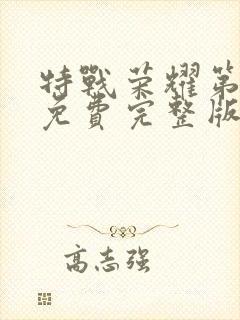 特戰荣耀第
免費完整版
高志强